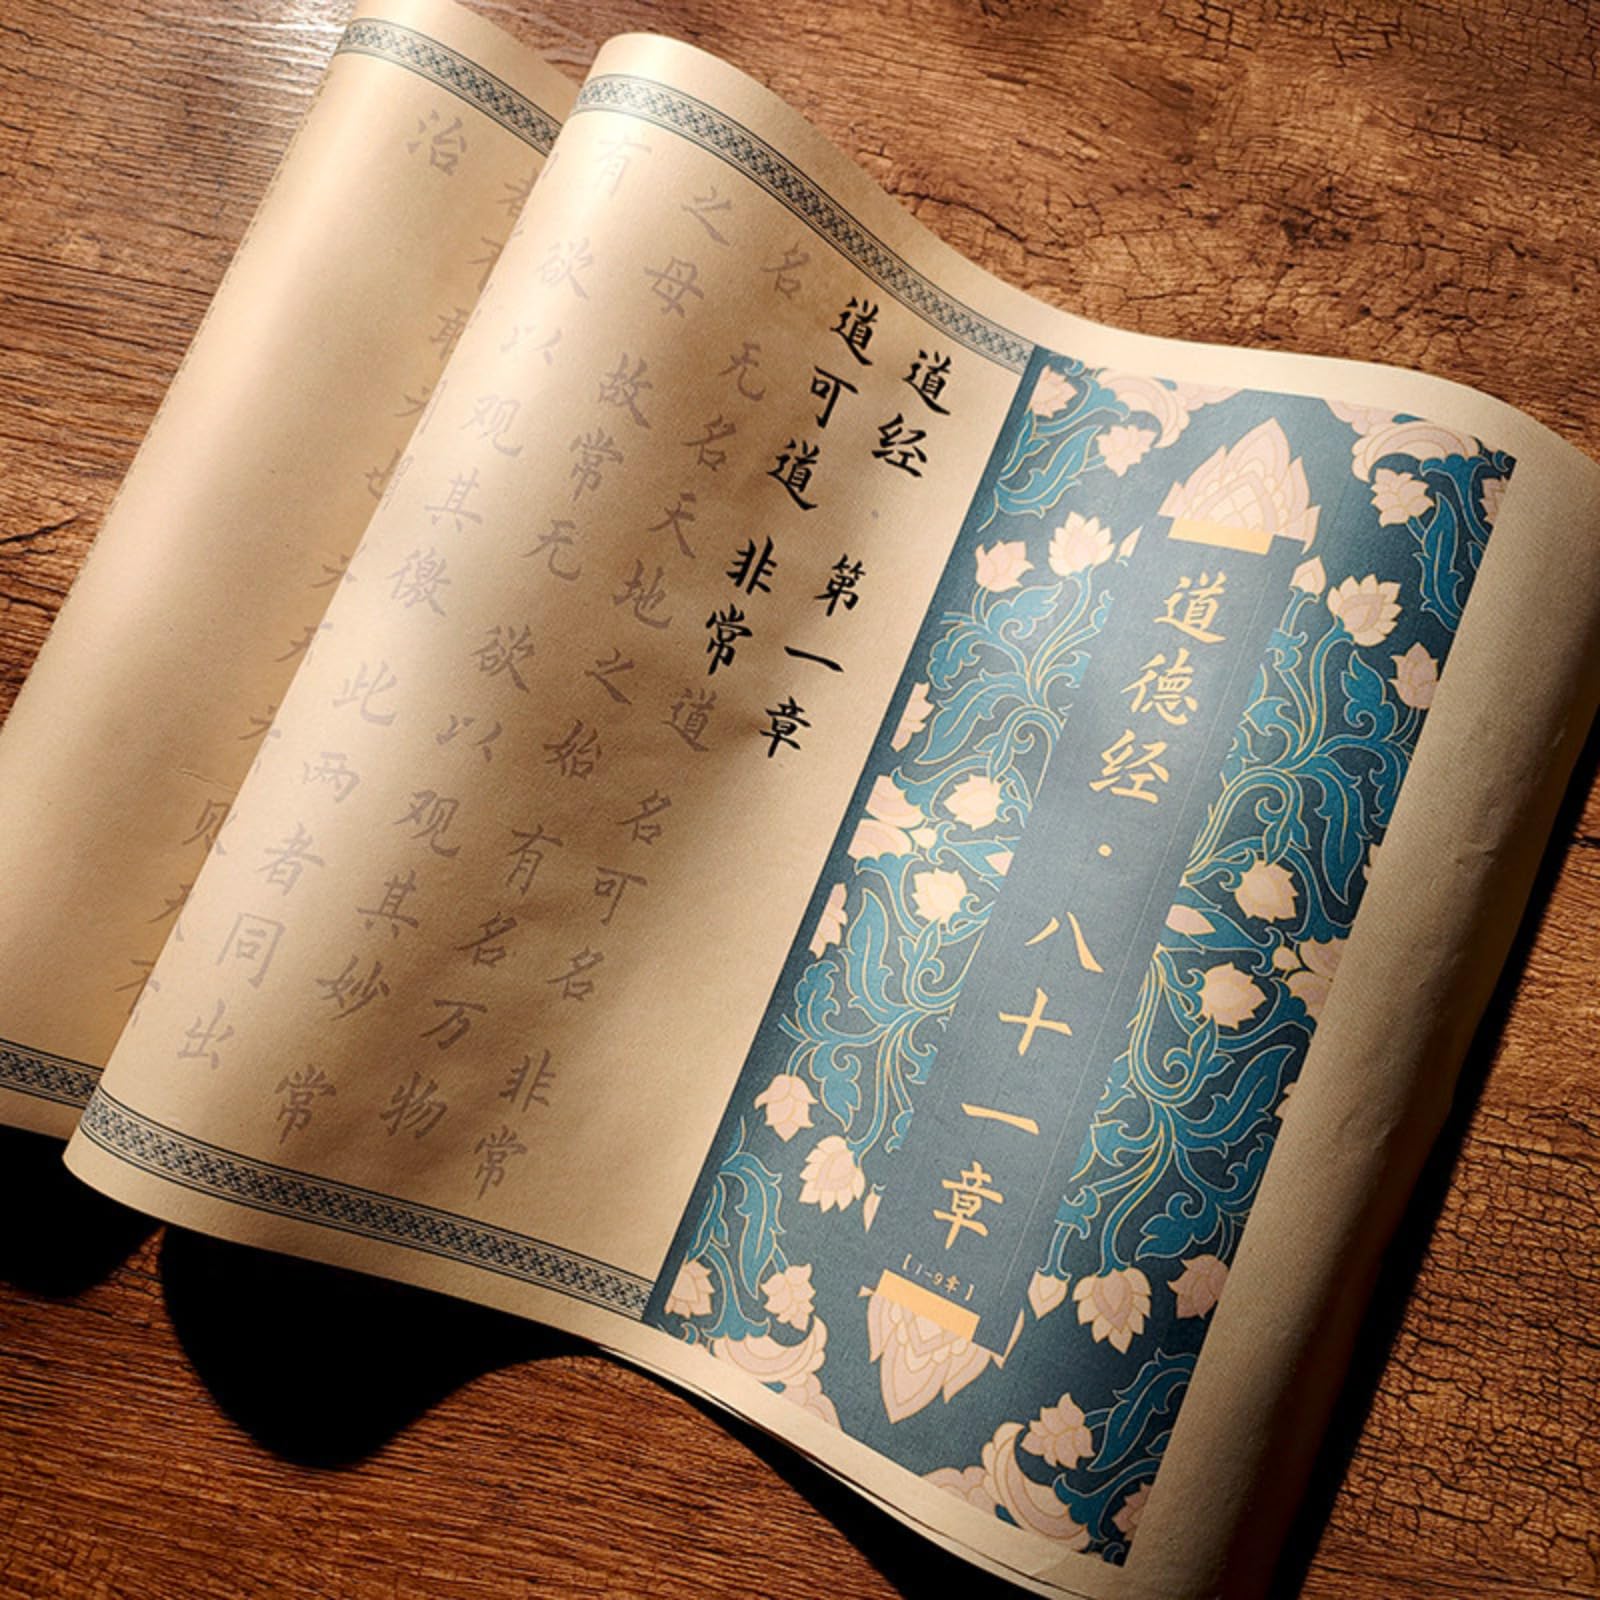 道德经·八十一章
【1-9章】
道经·第一章
道可道 非常道 名可名 非常
名 无名天地之始 有名万物
之母 故常无 欲以观其妙 常
有 欲以观其徼 此两者 同出
治